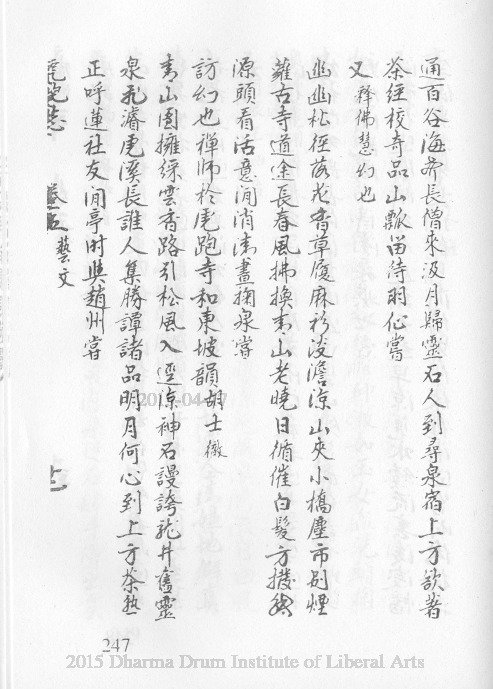 通百谷海希長僧來汲月歸靈石人到尋泉宿上方欲著
茶經校奇品山瓢留待羽仙嘗
又 釋佛慧幻也
幽幽松徑落花香草履麻衫淡澹涼山夾小橋塵市別煙
蘿古寺道途長春風拂換青山老曉日循催白髮方撥
源頭看活意閒消清晝掬泉嘗
訪幻也禪師於虎跑寺和東坡韻 胡士徽
青山圍擁綵雲香路引松風入逕涼神石謾誇龍井舊靈
泉乳濬虎溪長誰人集勝譚諸品明月何心到上方茶熟
正呼蓮社友閒亭時與趙州嘗
虎跑 志 藝文
247
2015 Dharma Drum Institute of Liberal Arts